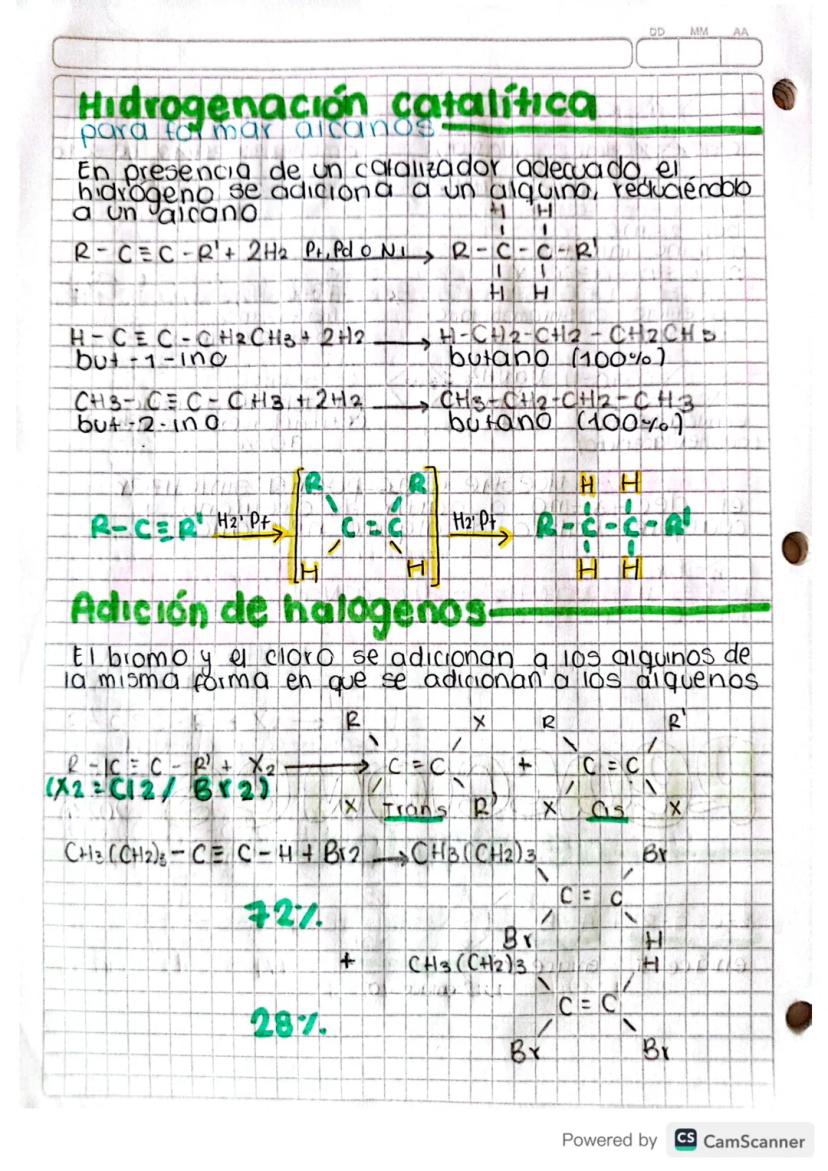 DD MM AA
Hidrogenación catalítica
para formar alcanos
En presencia de un catalizador adecuado, el
hidrógeno se adiciona a un alquino, reduciéndolo
a un alcano
H H
R - C ≡ C - R' + 2H2 Pt, Pd o Ni → R - C - C - R'
H H
H - C ≡ C - CH2CH3 + 2H2 → H-CH2-CH2-CH2CH3
but-1-ino butano (100%)
CH3-C≡C-CH3 + 2H2 → CH3-CH2-CH2-CH3
but-2-ino butano (100%)
R R H H
R-C≡R' H2' Pt → C = C H2' Pt → R-C-C-R'
H H H H
Adición de halogenos
El bromo y el cloro se adicionan a los alquinos de
la misma forma en que se adicionan a los alquenos
R X R R'
R - C ≡ C - R' + X2 → C = C + C = C
(X2 = Cl2/ Br2) X Trans R' X Cis X
CH3(CH2)3 - C ≡ C - H + Br2 → CH3(CH2)3 Br
C = C
72%.
Br H
+ CH3(CH2)3 H
C = C
28%.
Br Br
Powered by CS CamScanner